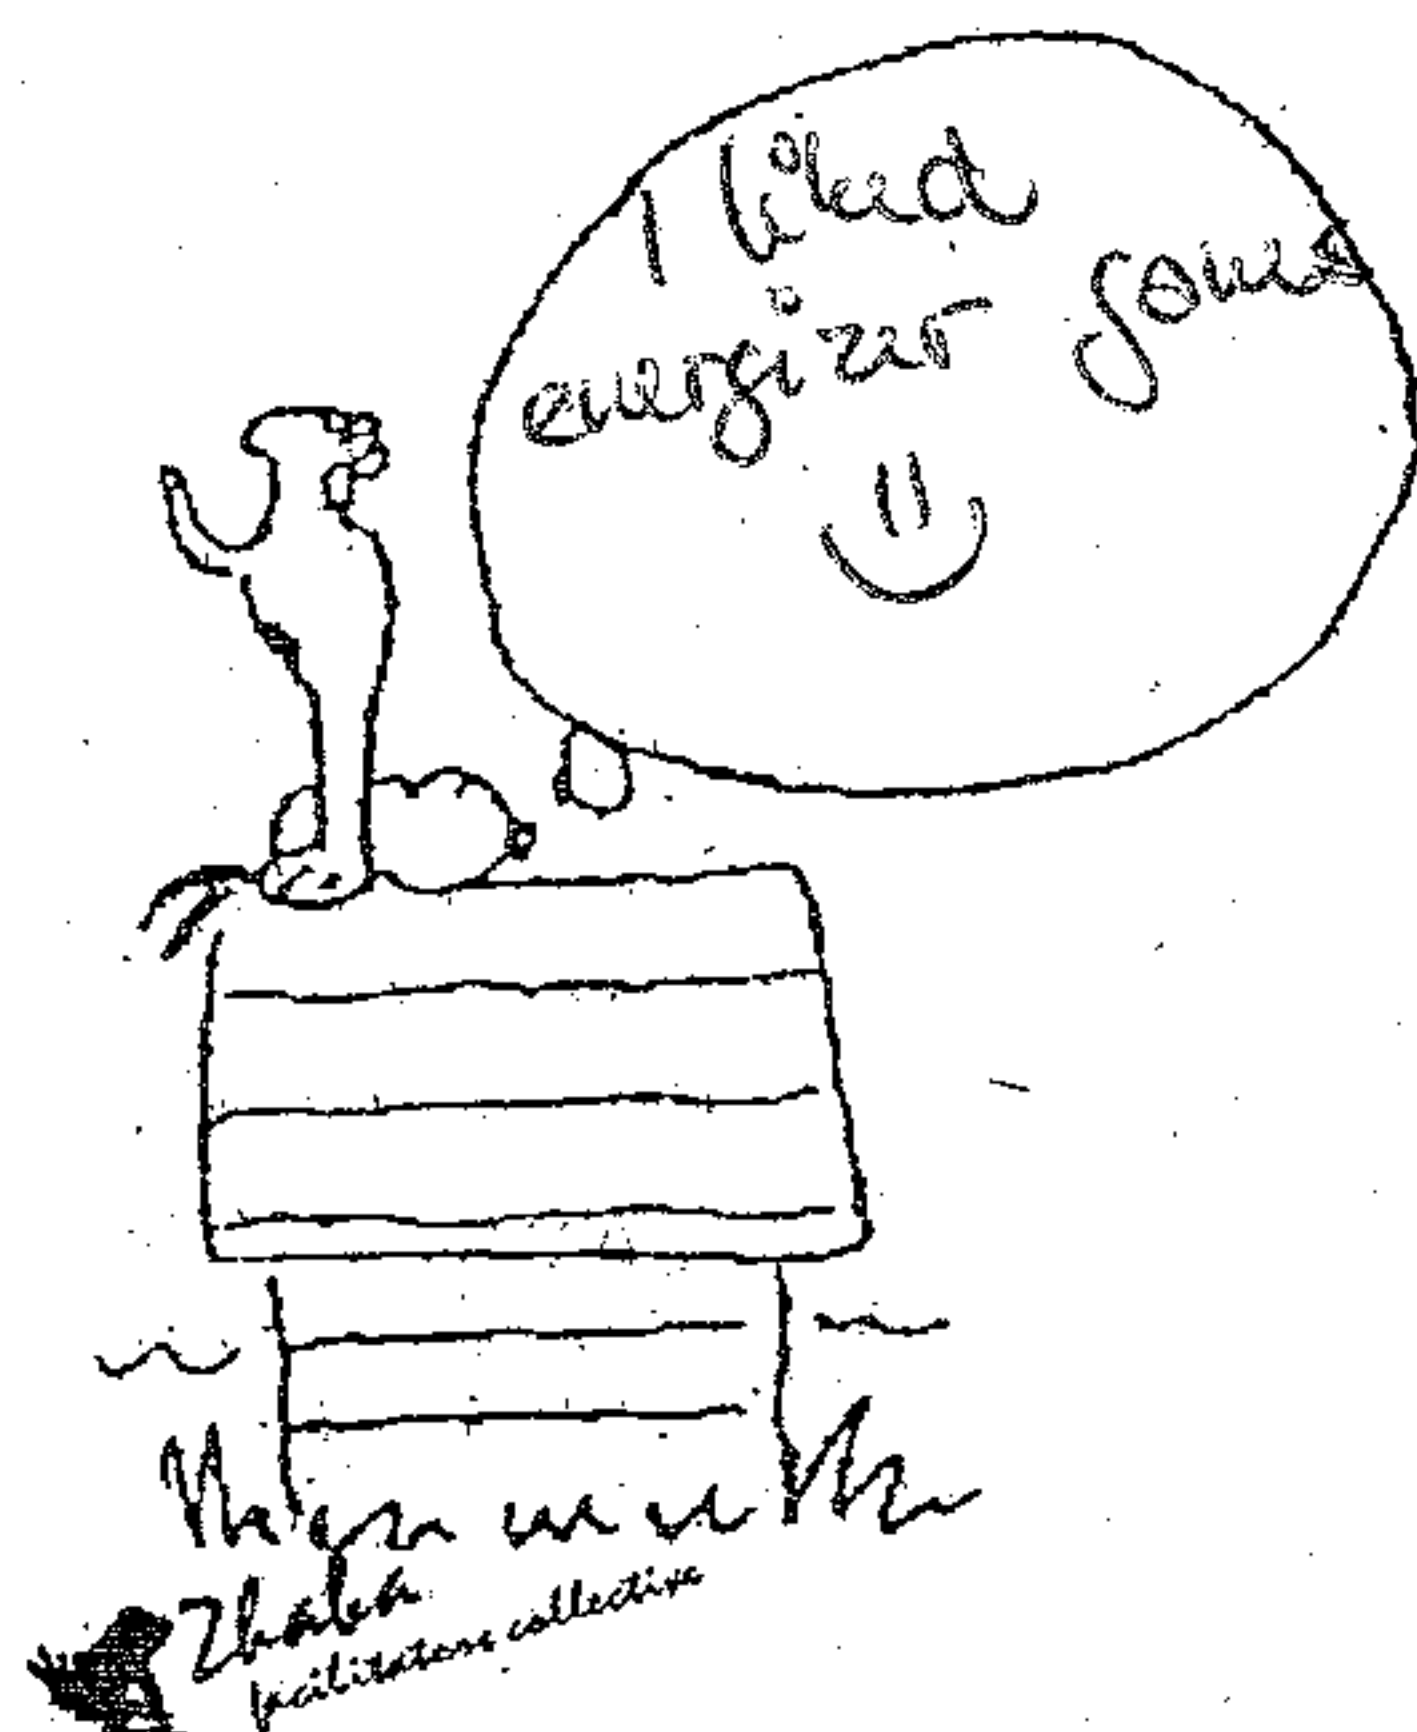 I liked
energizer games
Zhaba
facilitators collective